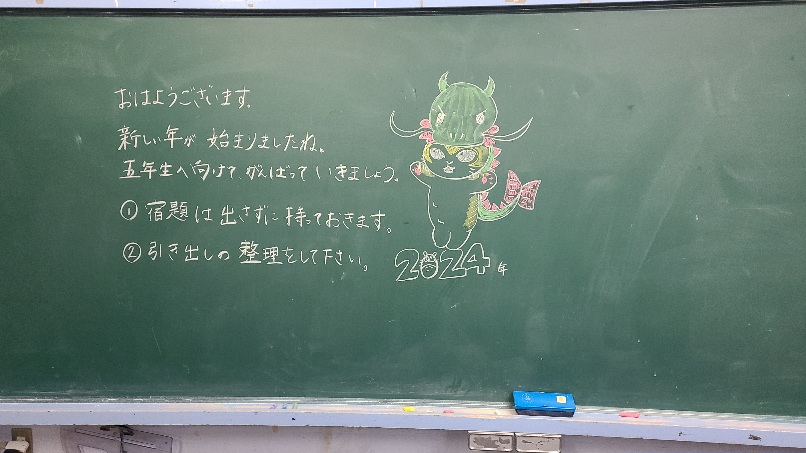 おはようございます。
新しい年が始まりましたね。
五年生へ向けて、がんばっていきましょう。
① 宿題は出さずに持っておきます。
② 引き出しの整理をして下さい。
2024年